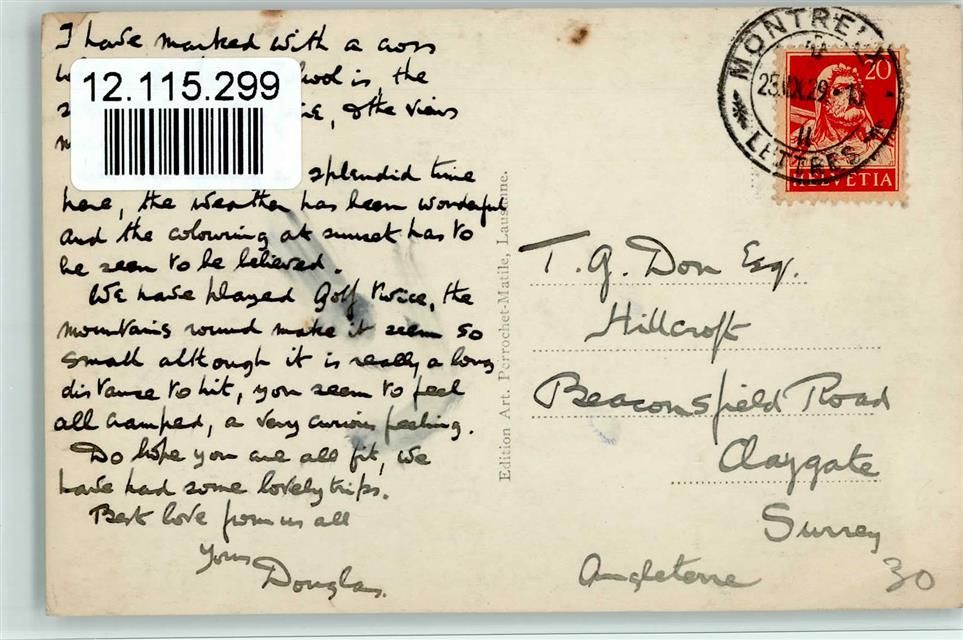 I have marked with a cross
school is, the
, & the views
splendid time
here, the weather has been wonderful
and the colouring at sunset has to
be seen to be believed.
We have played Golf twice, the
mountains round make it seem so
small although it is really a long
distance to hit, you seem to feel
all cramped, a very curious feeling.
Do hope you are all fit, we
have had some lovely trips.
Best love from us all
Yours
Douglas.
12.115.299
Edition Art. Perrochet-Matile, Lausanne.
MONTREUX
LETTRES
20
HELVETIA
T. G. Don Esq.
Hillcroft
Beaconsfield Road
Claygate
Surrey
Angleterre
30